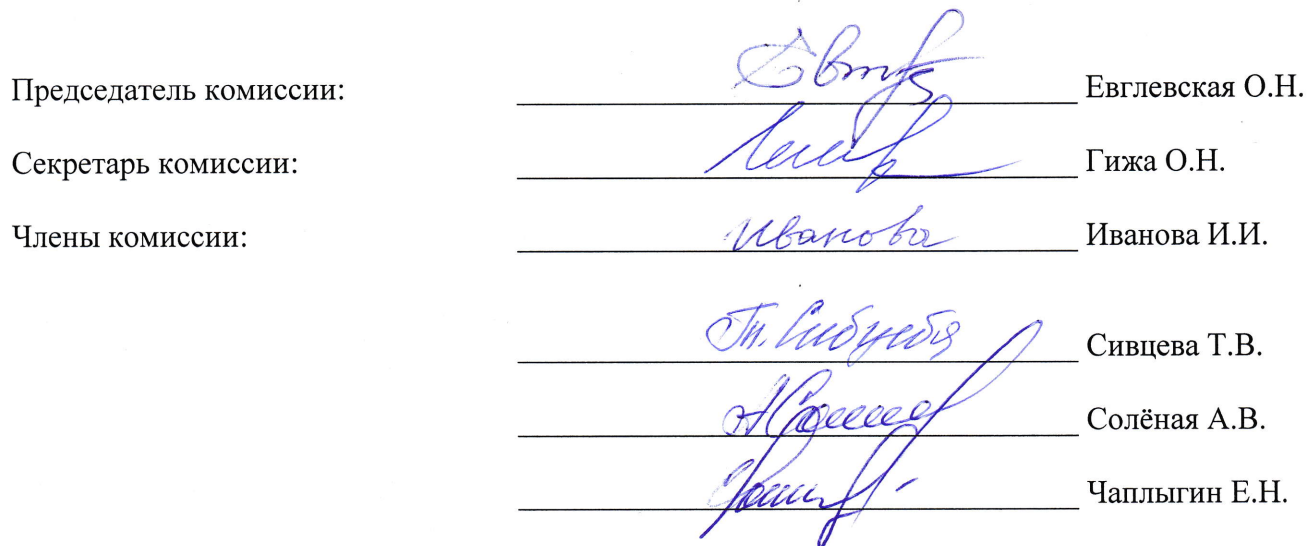 Председатель комиссии: Евглевская О.Н.
Секретарь комиссии: Гижа О.Н.
Члены комиссии: Иванова Иванова И.И.
Сивцева Т.В.
Солёная А.В.
Чаплыгин Е.Н.